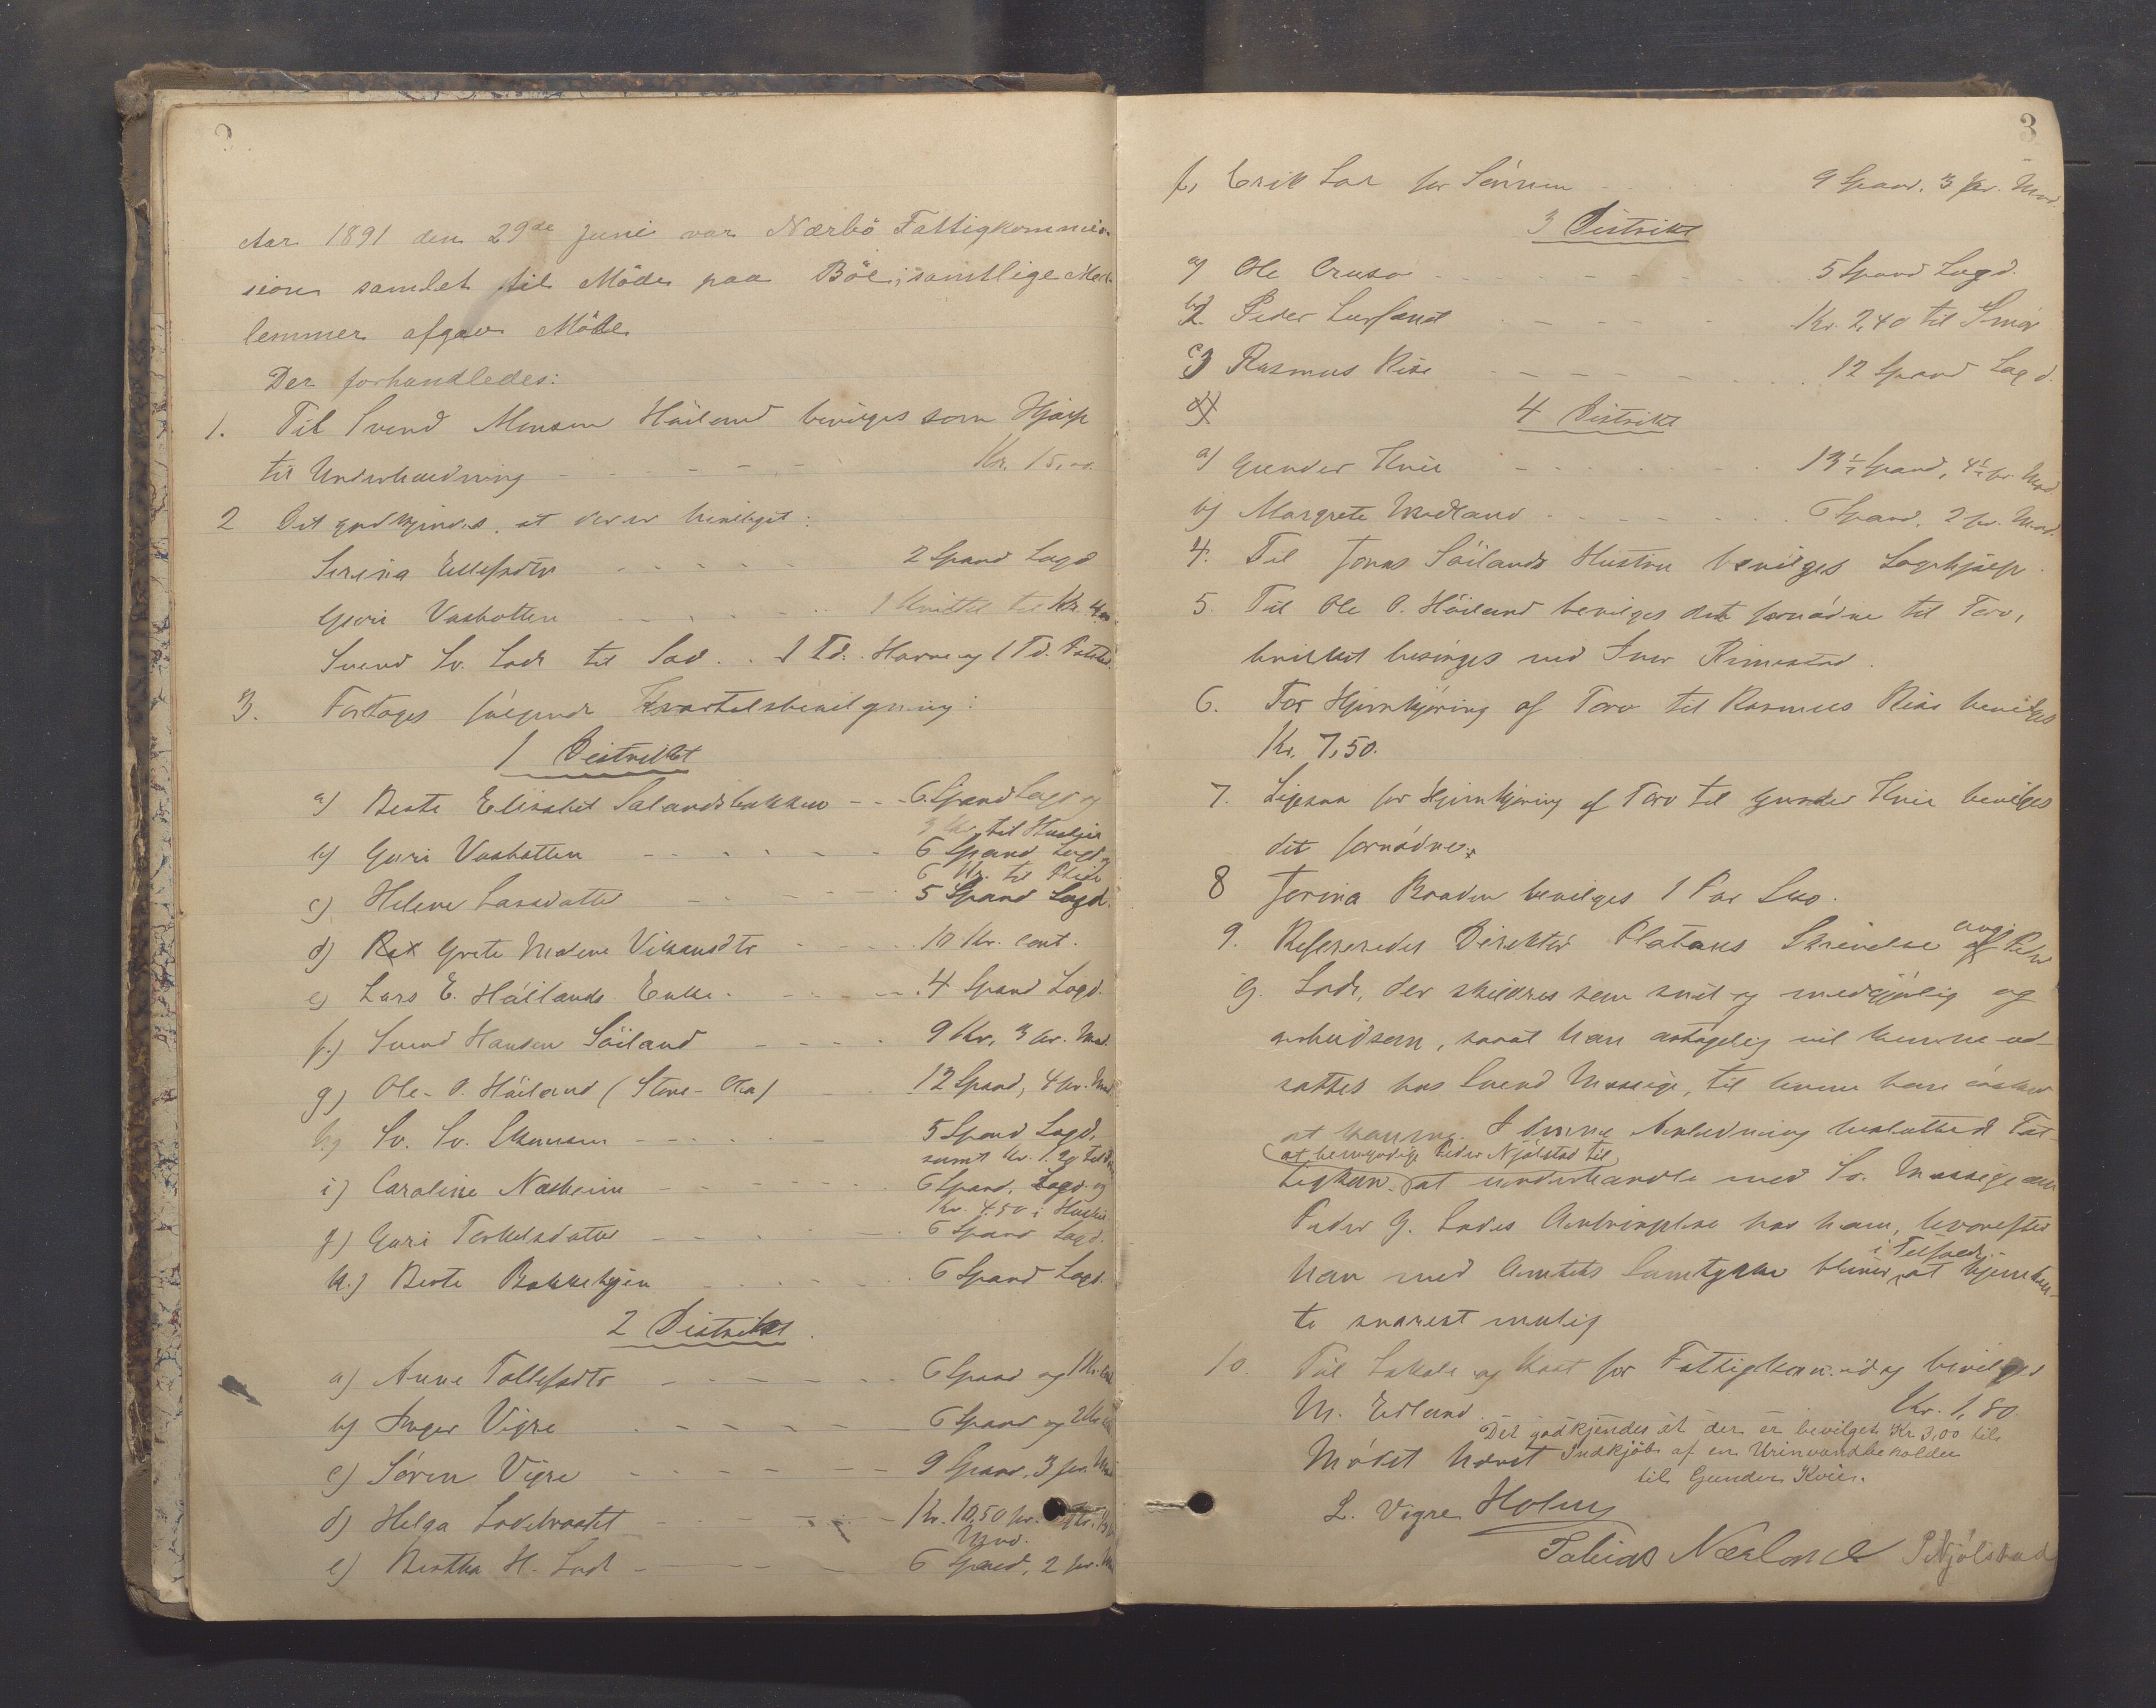 Aar 1891 den 29de Juni var Nærbö Fattigkommis-
sion samlet til Möde paa Böe; samtlige Med-
lemmer afgav Möde
Der forhandledes:
1. Til Svend Monsen Höiland bevilges som Hjælp
til Underholdning Kr. 15,00.
2 Det godkjendes, at der er bevilget:
Serina Ellefsdtr 2 Spand Lagd
Guri Vashotten 1 til Kr. 4,00
Svend Sv. Lode til Sæd 1 Td. Havre og 1 Td. Potet.
3. Foretoges følgende Kvartalsbevilgning:
1 Distrikt
a) Berte Elisabet Salandsbakken 6 Spand Lagd og
3 Kr. til Husleie
b) Guri Vashotten 6 Spand Lagd og
6 Kr. til
c) Helene Larsdatter 5 Spand Lagd.
d) Grete Malene Vikansdtr 10 Kr. cont.
e) Lars E. Höilands Enke 4 Spand Lagd.
f.) Svend Hansen Söiland 9 Kr, 3 pr. Mnd.
g) Ole O. Höiland (Store-Ola) 12 Spand, 4 pr. Mnd
h) Sv. Sv. 5 Spand Lagd,
samt Kr. 1.20 til
i) Caroline Næsheim 6 Spand, Lagd og
Kr. 4.50 i Husleie
j) Guri Torkelsdatter 6 Spand Lagd.
k.) Berte Bakkehgien 6 Spand Lagd.
2 Distrikt
a) Anne Tollefsdtr 6 Spand og 1 Kr.
b) Inger Vigre 6 Spand og 2 Kr
c) Sören Vigre 9 Spand, 3 pr. Mnd
d) Helga Kr. 10,50 pr.
Mnd.
e) Bertha H. Lode 6 Spand, 2 pr. Mn
3
f, Erik Lode for Sönnen 9 Spand, 3 pr. Mnd.
3 Distrikt
a) Ole 5 Spand Lagd.
b) Peder Kr. 2,40 til Smör
c) Rasmus Risa 12 Spand Lagd.
4 Distrikt
a) Gunder Kvie 13½ Spand, 4½ pr. Mnd.
b) Margrete Madland 6 Spand, 2 pr. Mnd.
4. Til Jonas Söilands Hustru bevilges Lægehjælp.
5. Til Ole O. Höiland bevilges det fornödne til Torv,
hvilket besörges ved Iver Rimestad.
6. For Hjemkjöring af Torv til Rasmus Risa bevilges
Kr. 7,50.
7. Ligesaa for Hjemkjöring af Torv til Gunder Kvie bevilges
det fornödne.
8 Jorina Braden bevilges 1 Par Sko.
9. Refereredes Direktör Skrivelse ang Peder
G. Lode, der skildres som snil og medgjörlig og
arbeidsom, saaat han antagelig vil kunne ud-
sættes hos Svend Mossige, til hvem han önsker
at komme. I denne Anledning beslutted Fat-
at bemyndige Peder Njölstad til
tigkom. at underhandle med Sv. Mossige om
Peder G. Lodes Anbringelse hos ham, hvorefter
i Tilfælde
han med Amtets Samtykke bliver at hjemhen-
te snarest mulig
10. Til Lokale og Kost for Fattigkom. idag bevilges
M. Edland Kr. 1,80.
Det godkjendes at der er bevilget Kr 3,00 til
Mödet hævet Indkjöb af en Urinvandbeholder
til Gunder Kvie.
L. Vigre Holmy
Tobias Nærland P Njölstad